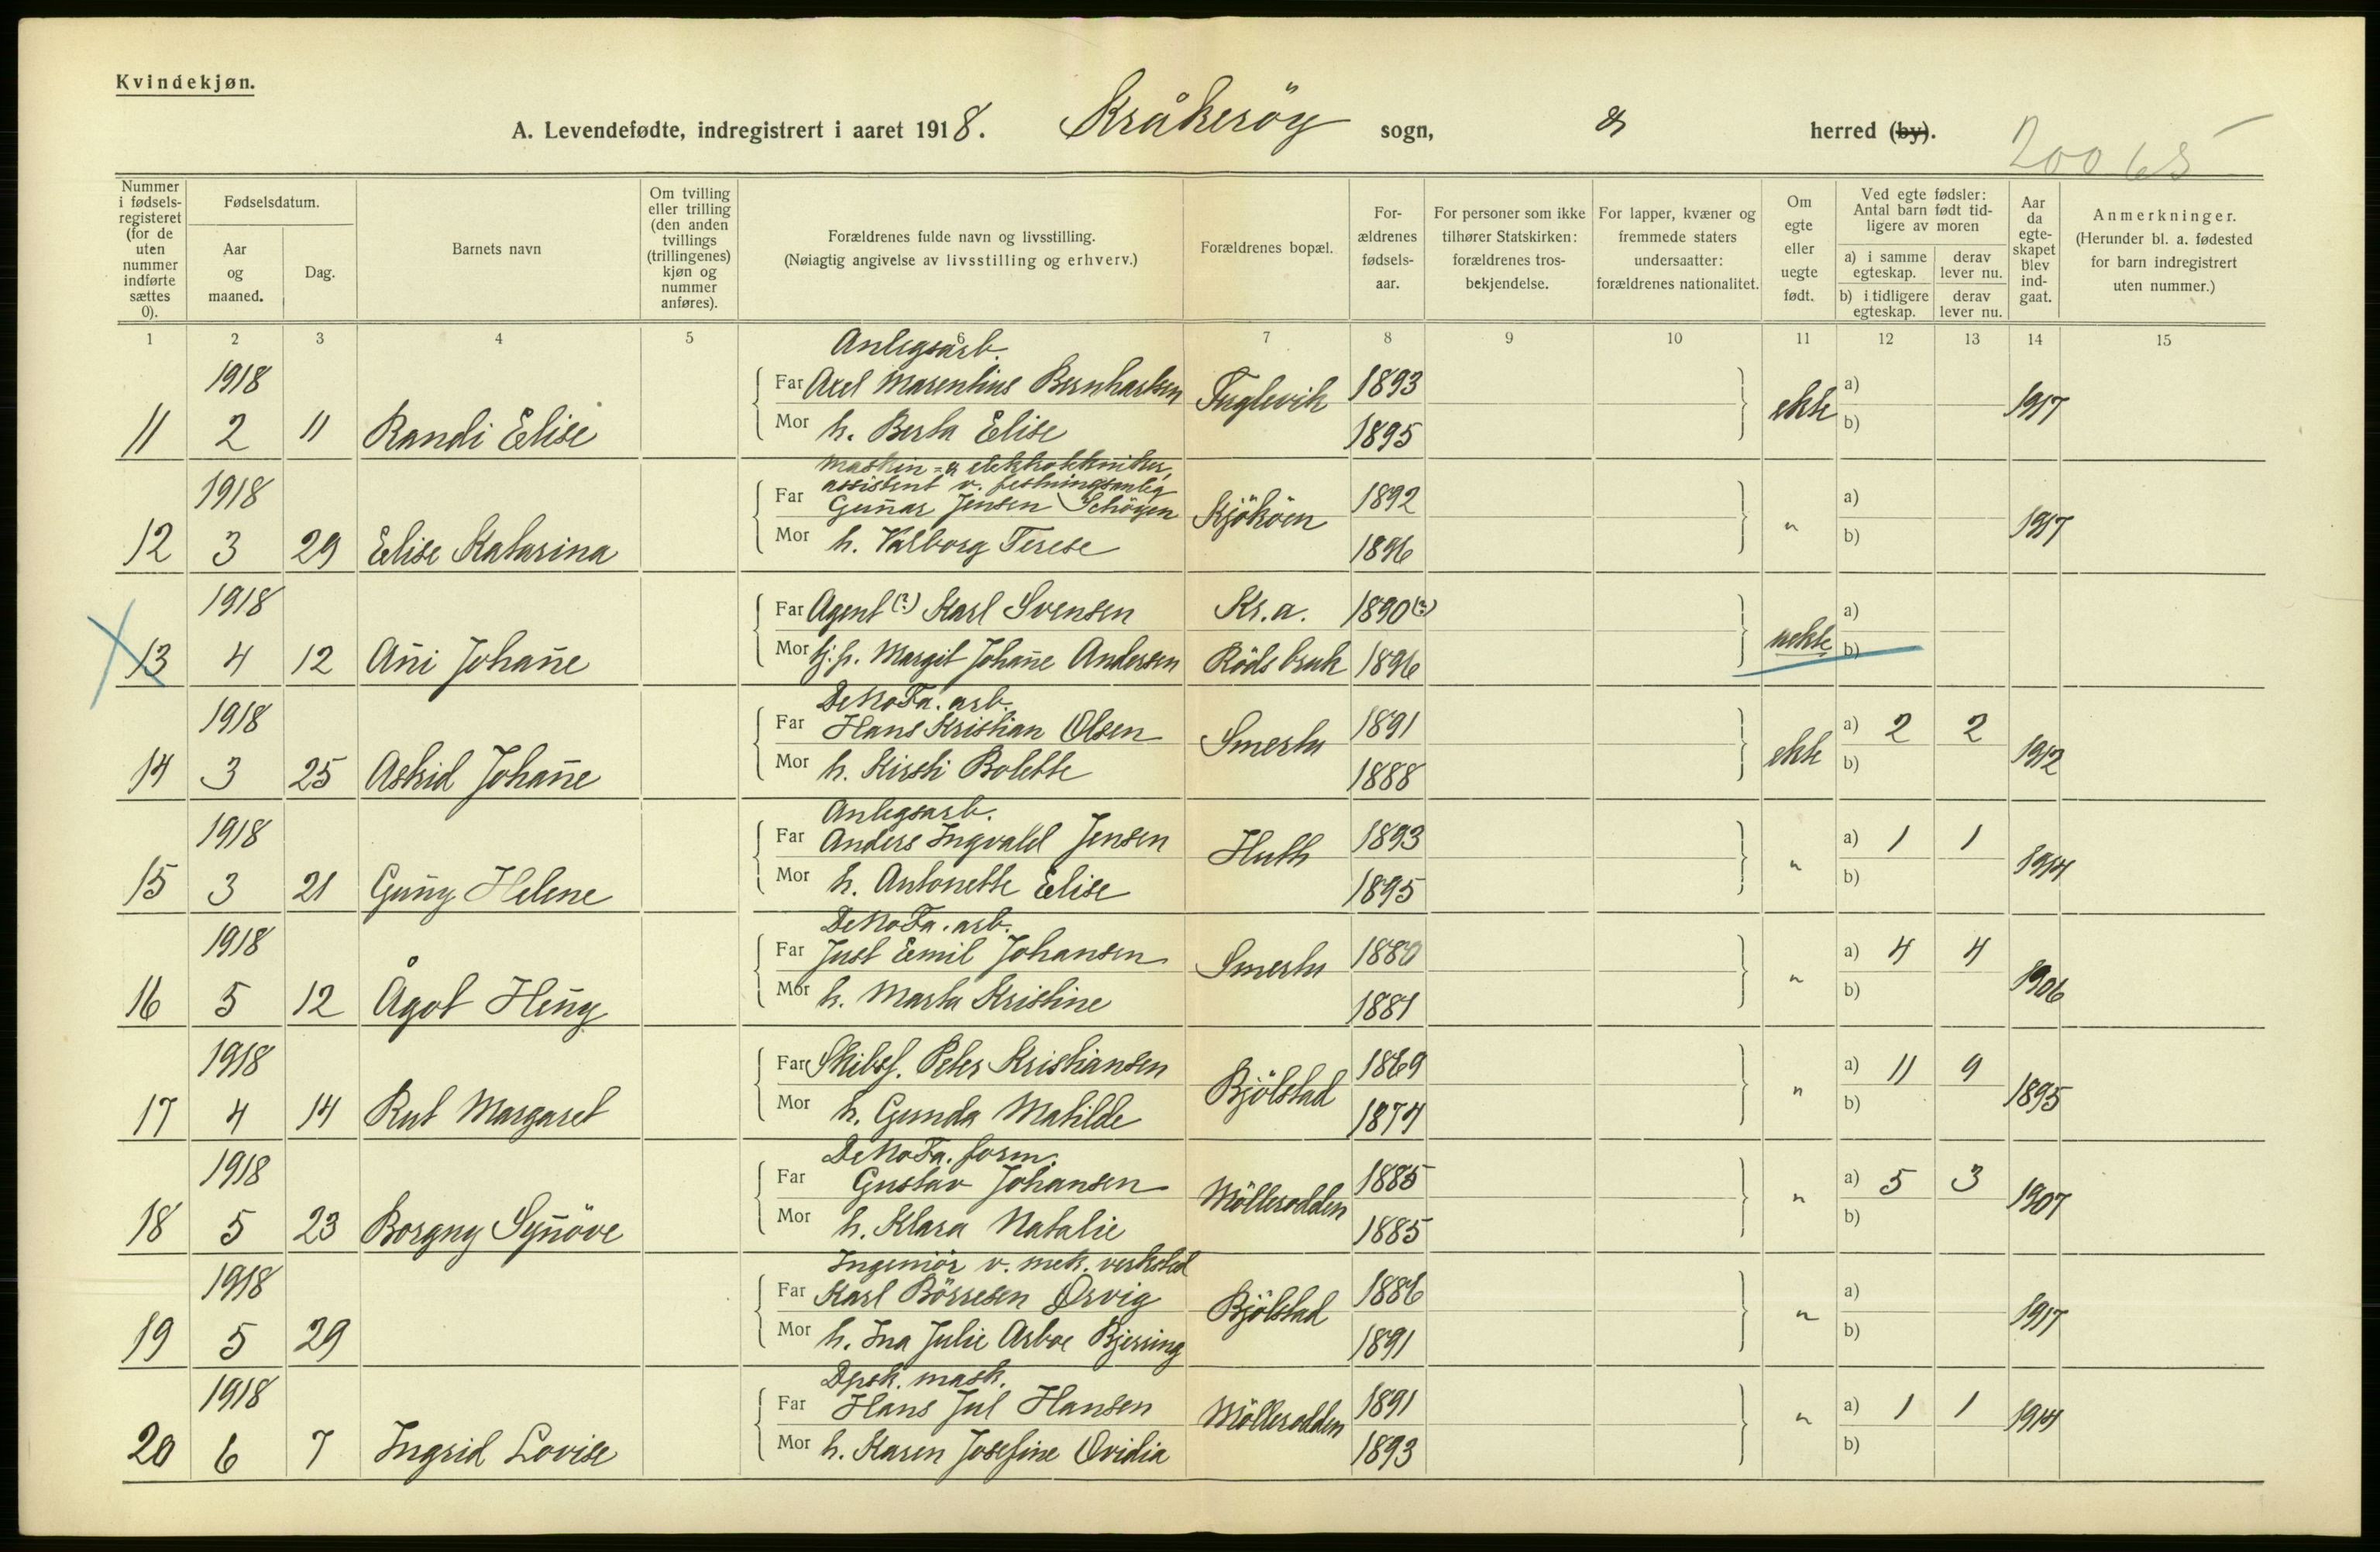 Kvindekjøn.
A. Levendefødte, indregistrert i aaret 1918. Kråkeröy sogn, & herred (by).
20065
Nummer i fødselsregisteret (for de uten nummer indførte sættes 0).
Fødselsdatum.
Aar og maaned.
Dag.
Barnets navn
Om tvilling eller trilling (den anden tvillings (trillingenes) kjøn og nummer anføres).
Forældrenes fulde navn og livsstilling.
(Nøiagtig angivelse av livsstilling og erhverv.)
Forældrenes bopæl.
For-ældrenes fødsels-aar.
For personer som ikke tilhører Statskirken: forældrenes tros-bekjendelse.
For lapper, kvæner og fremmede staters undersaatter: forældrenes nationalitet.
Om egte eller uegte født.
Ved egte fødsler: Antal barn født tid-ligere av moren
a) i samme egteskap.
derav lever nu.
b) i tidligere egteskap.
derav lever nu.
Aar da egte-skapet blev ind-gaat.
Anmerkninger.
(Herunder bl. a. fødested for barn indregistrert uten nummer.)
1 2 3 4 5 6 7 8 9 10 11 12 13 14 15
Anlegsarb.
1918 Far Axel Marentius Bernhartsen Fuglevik 1893 ekte a) 1917
11 2 11 Randi Elise Mor h. Berta Elise 1895 b)
Maskin- & elektrotekniker,
assistent v. festningsanleg
1918 Far Gun̄ar Jensen Schöyen Kjököen 1892 " a) 1917
12 3 29 Elise Katarina Mor h. Valborg Terese 1896 b)
1918 Far Agent (?) Karl Svensen Kr.a. 1890(?) uekte a)
13 4 12 An̄i Johan̄e Mor tj.p. Margit Johan̄e Andersen Röds bruk 1896 b)
DeNoFa. arb.
1918 Far Hans Kristian Olsen Smertu 1891 ekte a) 2 2 1912
14 3 25 Astrid Johan̄e Mor h. Kirsti Bolette 1888 b)
Anlegsarb.
1918 Far Anders Ingvald Jensen Huth 1893 " a) 1 1 1914
15 3 21 Gun̄y Helene Mor h. Antonette Elise 1895 b)
DeNoFa. arb.
1918 Far Just Emil Johansen Smertu 1880 " a) 4 4 1906
16 5 12 Ågot Hen̄y Mor h. Marta Kristine 1881 b)
1918 Far Skibsf. Peter Kristiansen Bjölstad 1869 " a) 11 9 1895
17 4 14 Rut Margaret Mor h. Gunda Matilde 1874 b)
DeNoFa. form.
1918 Far Gustav Johansen Möllerodden 1885 " a) 5 3 1907
18 5 23 Borgny Syn̄öve Mor h. Klara Natalie 1885 b)
Ingeniör v. mek. verksted
1918 Far Karl Börresen Ørvig Bjölstad 1886 " a) 1917
19 5 29 Mor h. Ina Julie Arboe Bjerring 1891 b)
mask.
1918 Far Hans Jul Hansen Möllerodden 1891 " a) 1 1 1914
20 6 7 Ingrid Lovise Mor h. Karen Josefine Ovidia 1893 b)